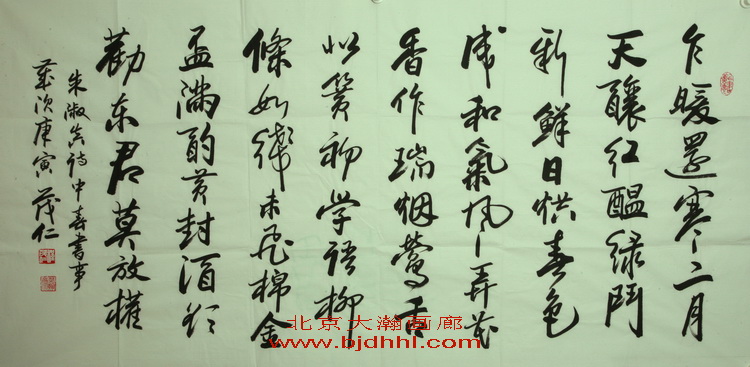 乍暖還寒二月
天釀红醞绿鬥
新鮮日烘春色
成和氣風弄花
香作瑞烟鶯舌
似簧初学语柳
條如线未飛棉金
盃滿酌黄封酒欲
勸东君莫放權
朱淑真诗中春書事
歲次庚寅茂仁
北京大瀚画廊
www.bjdhhl.com